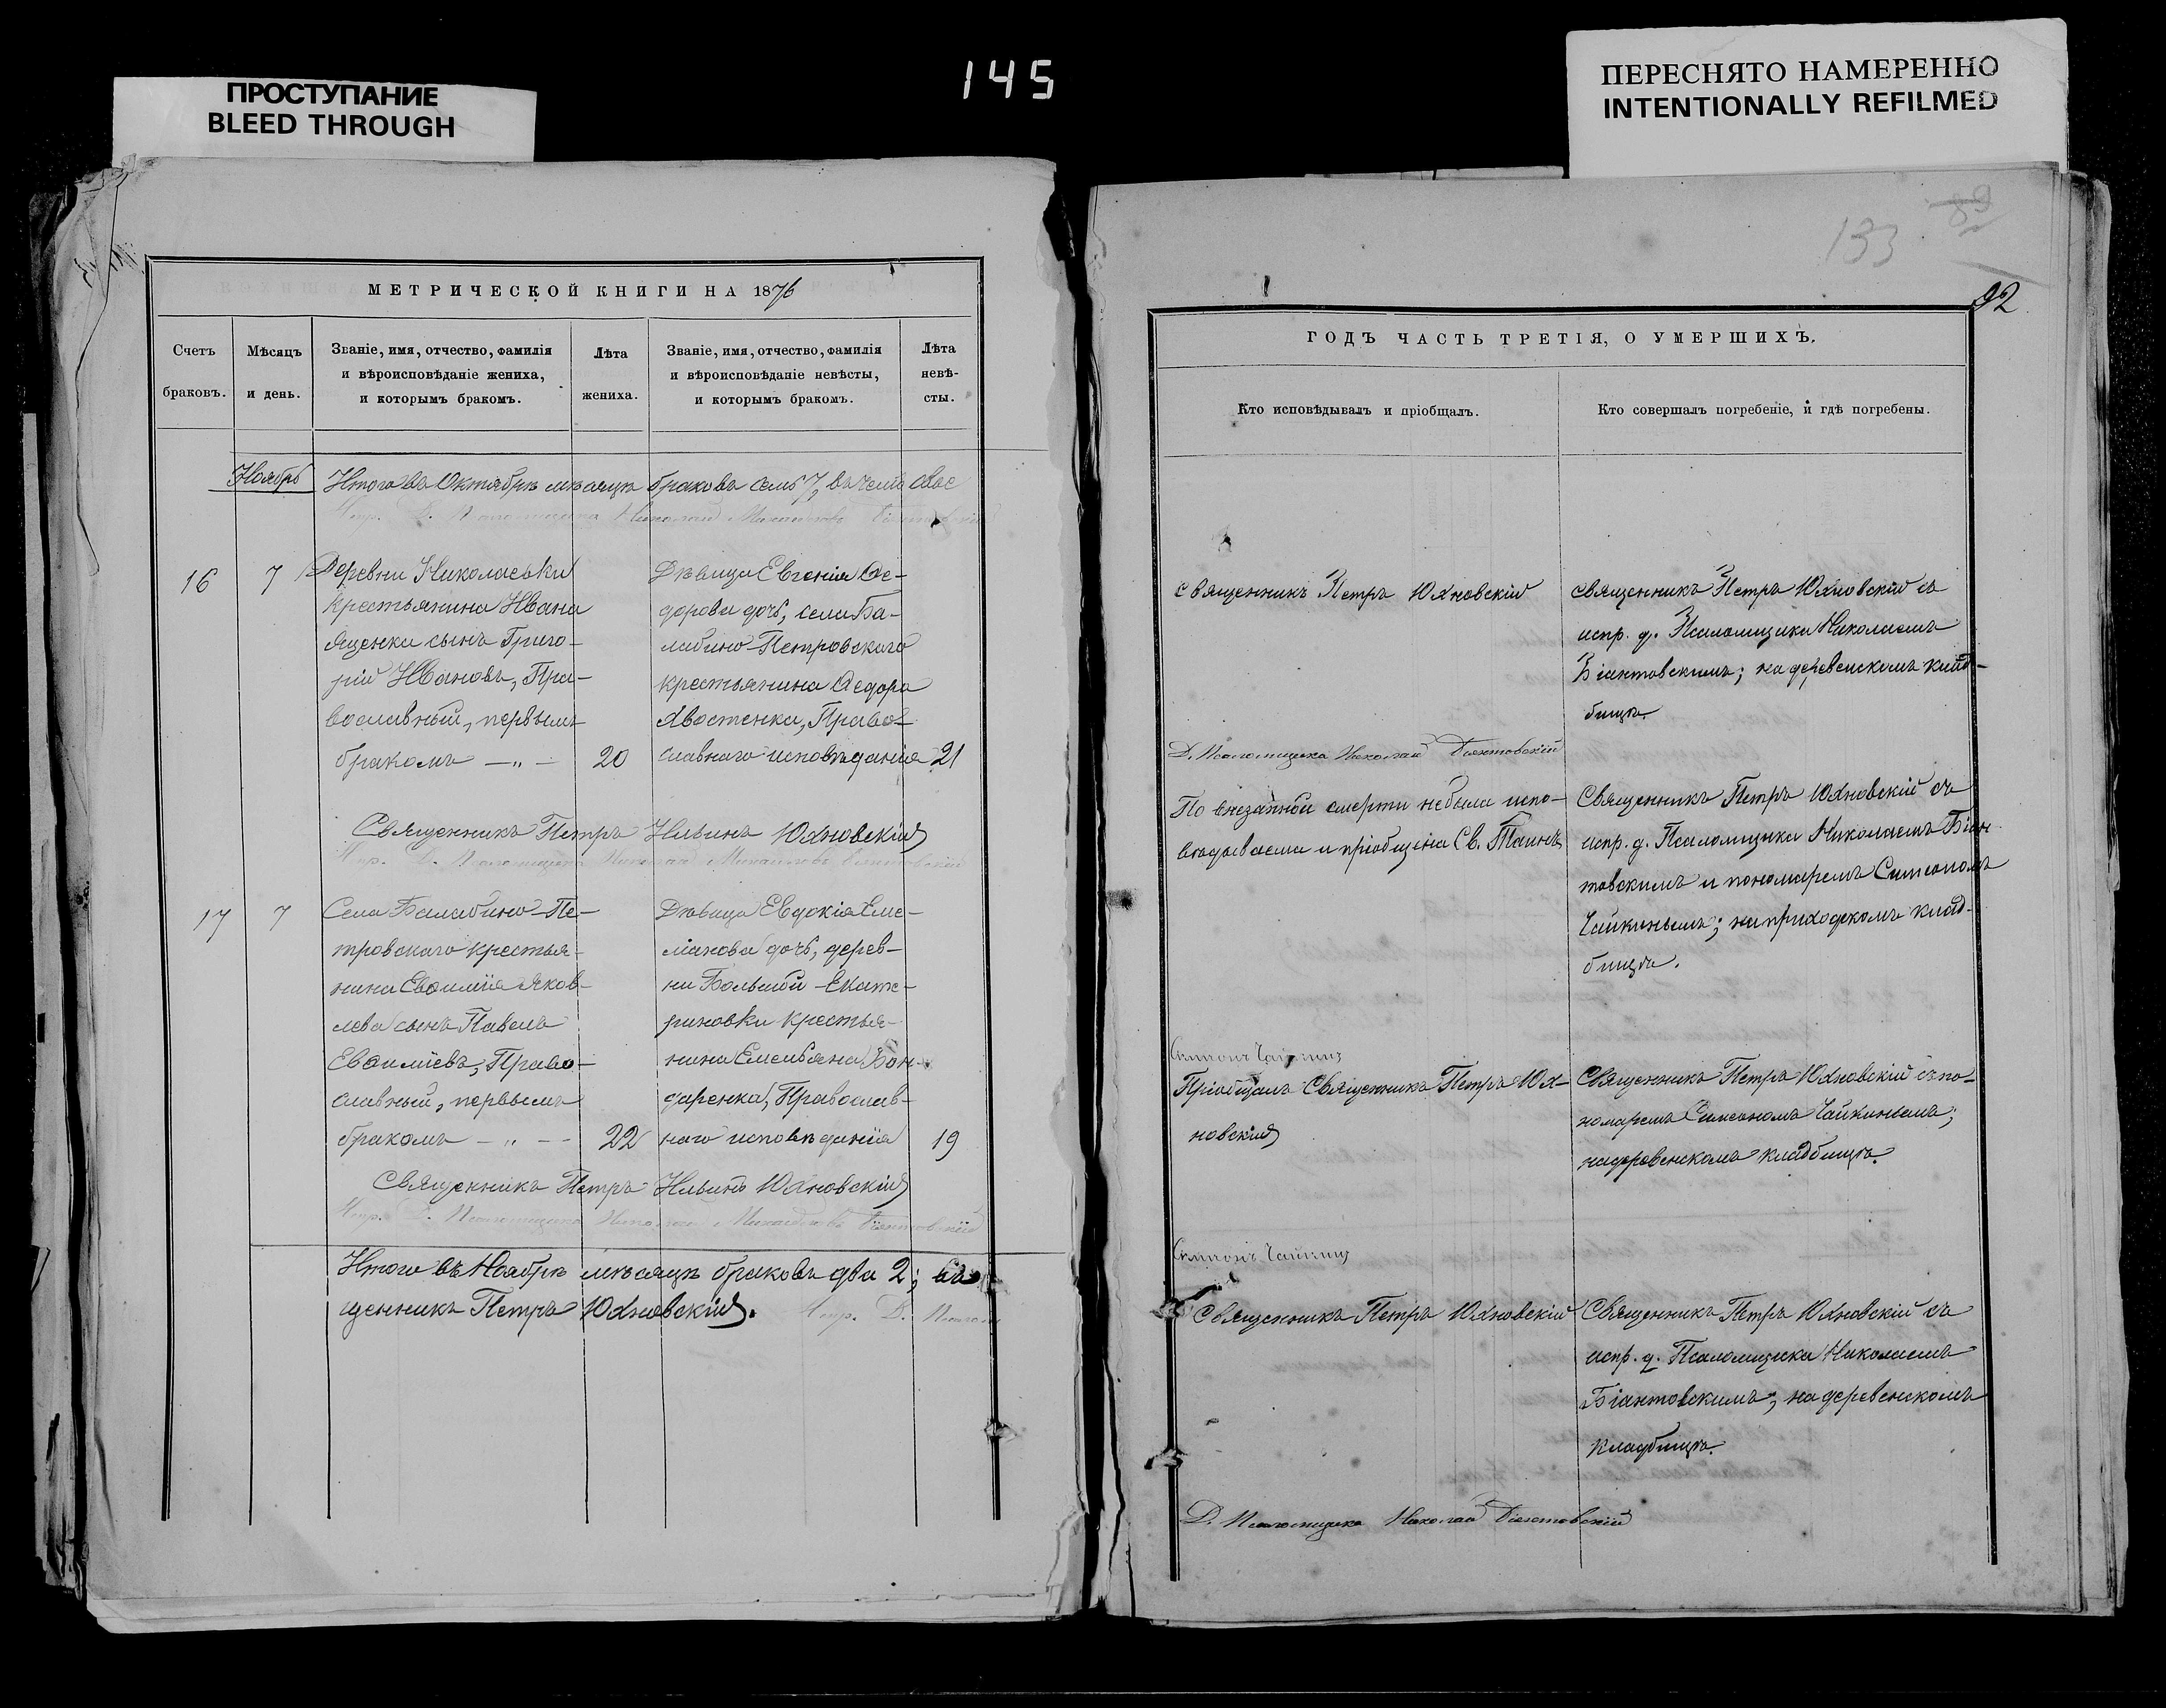 145
ПРОСТУПАНИЕ
BLEED THROUGH
ПЕРЕСНЯТО НАМЕРЕННО
INTENTIONALLY REFILMED
МЕТРИЧЕСКОЙ КНИГИ НА 1876
Счетъ браковъ.
Мѣсяцъ и день.
Званіе, имя, отчество, фамилія
и вѣроисповѣданіе жениха,
и которымъ бракомъ.
Лѣта
жениха.
Званіе, имя, отчество, фамилія
и вѣроисповѣданіе невѣсты,
и которымъ бракомъ.
Лѣта
невѣ-
сты.
Ноябрь
Итого въ Октябрѣ мѣсяцѣ браковъ семь 7,
16
7
Деревни Николаевки
крестьянина Ивана
Яценка сынъ Григо-
рій Ивановъ, Пра-
вославный, первымъ
бракомъ —„—
20
Дѣвица Евгенія Ѳе-
дорова дочь, села Ба-
лабино-Петровскаго
крестьянина Ѳедора
Хвостенка, Право-
славнаго исповѣданія
21
Священникъ Петръ Ильинъ Юхновскій
Испр. Д. Псаломщика Николай Михайловъ Біантовскій
17
7
Села Балабино-Пе-
тровскаго крестья-
нина Евѳимія Яков-
лева сынъ Павелъ
Евѳиміевъ, Право-
славный, первымъ
бракомъ —„—
22
Дѣвица Евдокія Еме-
ліанова дочь, дерев-
ни Большой-Екате-
риновки крестья-
нина Емельяна Бон-
даренка, Православ-
наго исповѣданія
19
Священникъ Петръ Ильинъ Юхновскій
Испр. Д. Псаломщика Николай Михайловъ Біантовскій
Итого въ Ноябрѣ мѣсяцѣ браковъ два 2; Свя
щенникъ Петръ Юхновскій. Испр. Д.
133
89
92
ГОДЪ ЧАСТЬ ТРЕТІЯ, О УМЕРШИХЪ.
Кто исповѣдывалъ и пріобщалъ.
Кто совершалъ погребеніе, и гдѣ погребены.
Священникъ Петръ Юхновскій
Священникъ Петръ Юхновскій съ
испр. д. Псаломщика Николаемъ
Біантовскимъ; на деревенскомъ клад-
бищѣ.
Д. Псаломщика Николай Біантовскій
По внезапной смерти небыла испо-
вѣдываема и пріобщена Св. Таинъ
Священникъ Петръ Юхновскій съ
испр. д. Псаломщика Николаемъ Біан
товскимъ и пономаремъ Симеономъ
Чайкинымъ; на приходскомъ клад-
бищѣ.
Симеонъ Чайкинъ
Пріобщалъ Священникъ Петръ Юх-
новскій
Священникъ Петръ Юхновскій съ по-
номаремъ Симеономъ Чайкинымъ;
на деревенскомъ кладбищѣ.
Симеонъ Чайкинъ
Священникъ Петръ Юхновскій
Священникъ Петръ Юхновскій съ
испр. д. Псаломщика Николаемъ
Біантовскимъ; на деревенскомъ
кладбищѣ.
Д. Псаломщика Николай Біантовскій